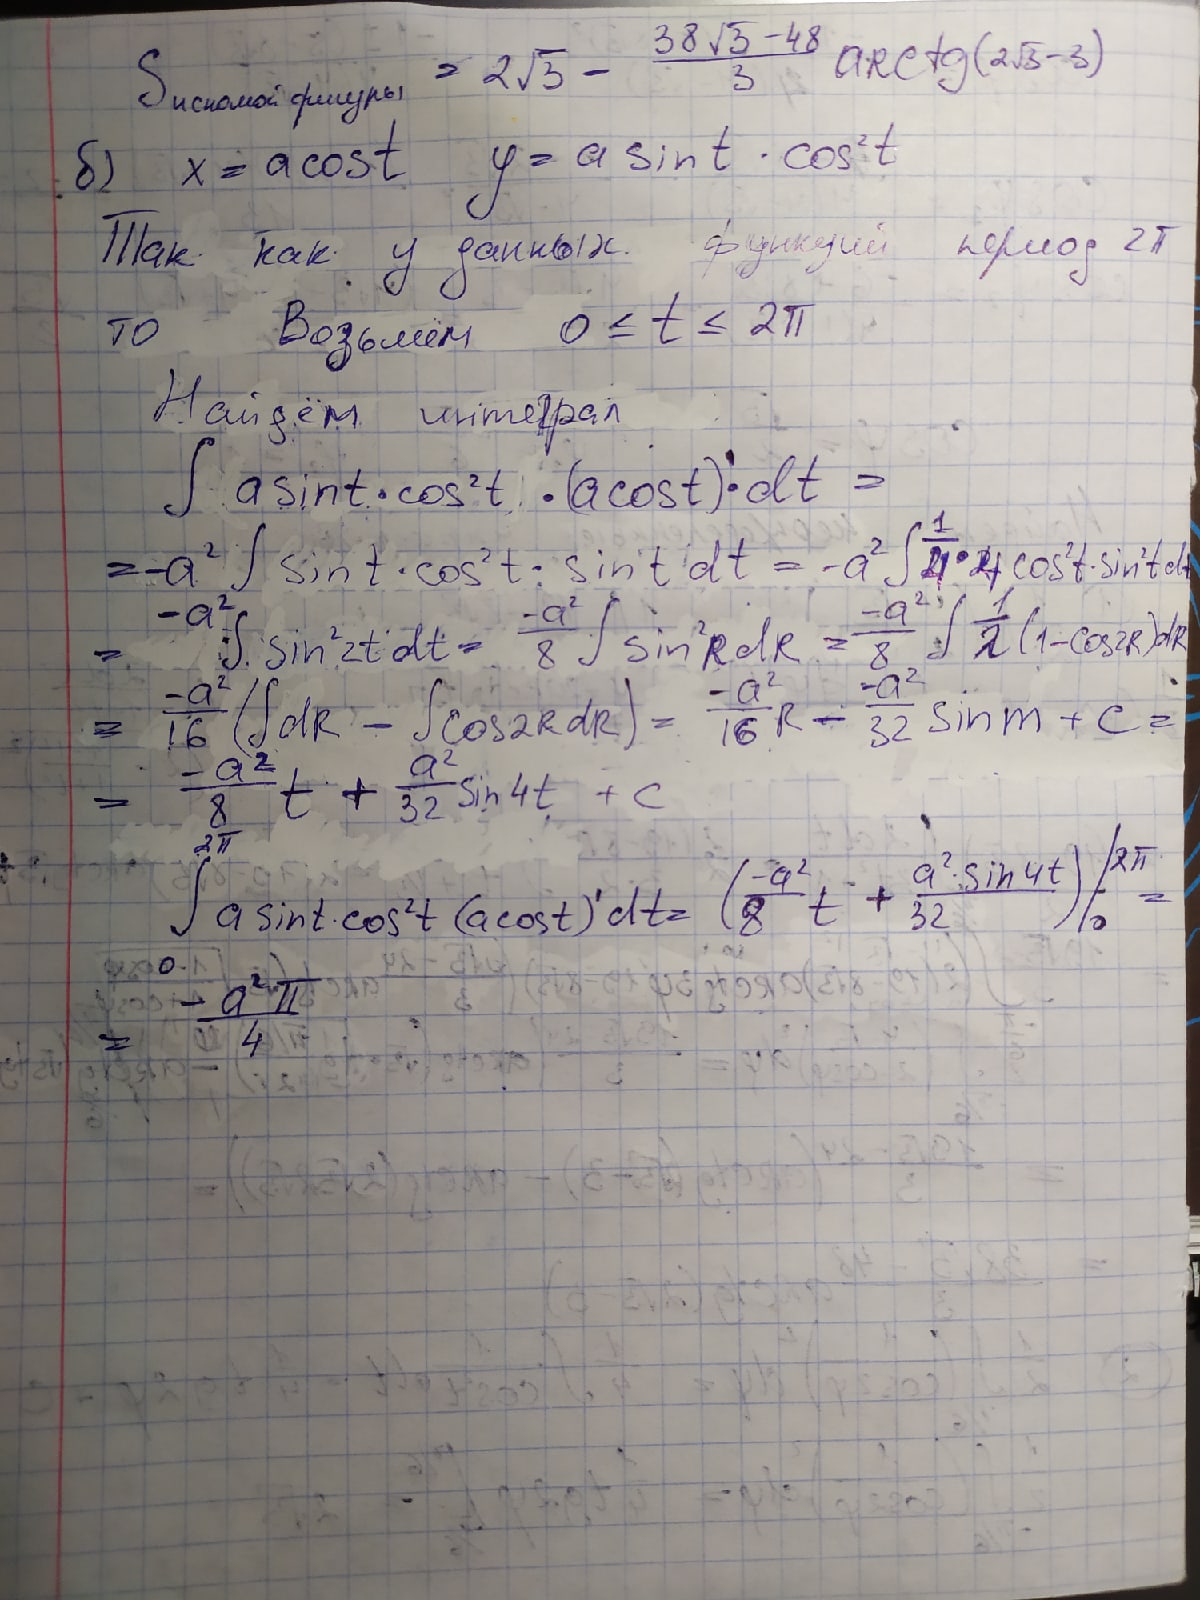 S искомой фигуры = 2√3 − (38√3 − 48)/3 arctg(2√3−3)
б) x = a cos t y = a sin t · cos²t
Так как у данных функций период 2π
то Возьмём 0 ≤ t ≤ 2π
Найдём интеграл
∫ a sin t · cos²t · (a cos t)' · dt =
= −a² ∫ sin t · cos²t · sin t dt = −a² ∫ 1/4 · 4 cos²t · sin²t dt
= −a² ∫ sin²2t dt = −a²/8 ∫ sin²R dR = −a²/8 ∫ 1/2 (1−cos2R)dR
= −a²/16 (∫dR − ∫cos2R dR) = −a²/16 R − −a²/32 sin m + c =
= −a²/8 t + a²/32 sin 4t + c
∫₀^2π a sin t · cos²t (a cos t)' dt = (−a²/8 t + a² · sin 4t/32) |₀^2π =
= −a²π/4